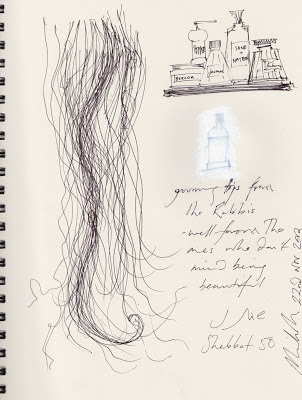 SAGE +
NATRO
JASMINE
grooming tips from
the Rabbis
- well from the
ones who don't
mind being
beautiful
Shabbat 50
22nd Nov 2012